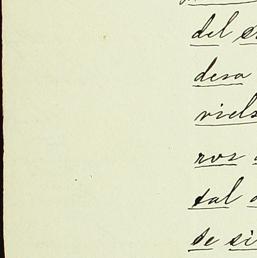 del
desa
viels
ros
tal
se si